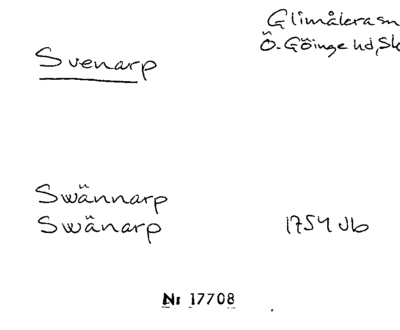 Glimåkra sn
Ö. Göinge hd, Sk
Svenarp
Swännarp
Swänarp 1754 Jb
Nr 17708